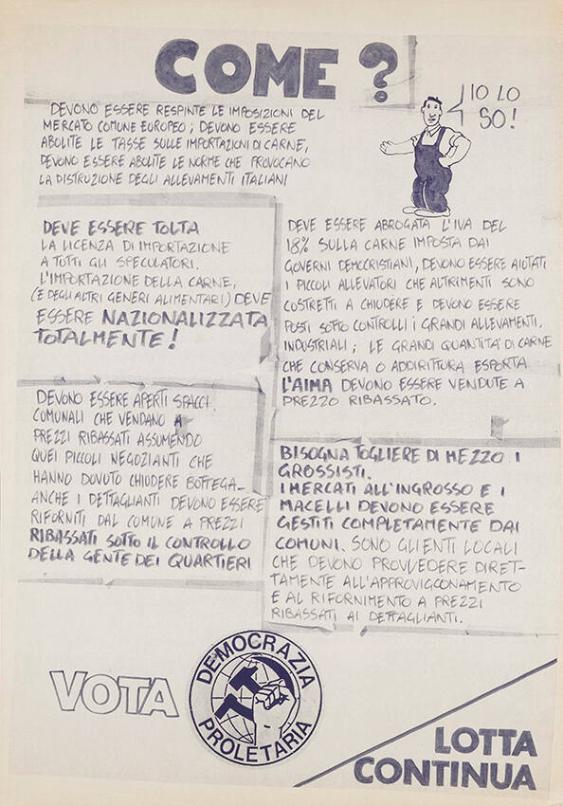 COME?
IO LO
SO!
DEVONO ESSERE RESPINTE LE IMPOSIZIONI DEL
MERCATO COMUNE EUROPEO; DEVONO ESSERE
ABOLITE LE TASSE SULLE IMPORTAZIONI DI CARNE,
DEVONO ESSERE ABOLITE LE NORME CHE PROVOCANO
LA DISTRUZIONE DEGLI ALLEVAMENTI ITALIANI
DEVE ESSERE TOLTA
LA LICENZA DI IMPORTAZIONE
A TUTTI GLI SPECULATORI.
L'IMPORTAZIONE DELLA CARNE,
(E DEGLI ALTRI GENERI ALIMENTARI) DEVE
ESSERE NAZIONALIZZATA
TOTALMENTE!
DEVE ESSERE ABROGATA L'IVA DEL
18% SULLA CARNE IMPOSTA DAI
GOVERNI DEMOCRISTIANI, DEVONO ESSERE AIUTATI
I PICCOLI ALLEVATORI CHE ALTRIMENTI SONO
COSTRETTI A CHIUDERE E DEVONO ESSERE
POSTI SOTTO CONTROLLI i GRANDI ALLEVAMENTI.
INDUSTRIALI; LE GRANDI QUANTITA' DI CARNE
CHE CONSERVA O ADDIRITTURA ESPORTA
L'AIMA DEVONO ESSERE VENDUTE A
PREZZO RIBASSATO.
DEVONO ESSERE APERTI SPACCI
COMUNALI CHE VENDANO A
PREZZI RIBASSATI ASSUMENDO
QUEI PICCOLI NEGOZIANTI CHE
HANNO DOVUTO CHIUDERE BOTTEGA_
ANCHE I DETTAGLIANTI DEVONO ESSERE
RIFORNITI DAL COMUNE A PREZZI
RIBASSATI SOTTO IL CONTROLLO
DELLA GENTE DEI QUARTIERI
BISOGNA TOGLIERE DI MEZZO I
GROSSISTI.
I MERCATI ALL'INGROSSO E I
MACELLI DEVONO ESSERE
GESTITI COMPLETAMENTE DAI
COMUNI. SONO GLI ENTI LOCALI
CHE DEVONO PROVVEDERE DIRET-
TAMENTE ALL'APPROVIGGONAMENTO
E AL RIFORNIMENTO A PREZZI
RIBASSATI AI DETTAGLIANTI.
VOTA
DEMOCRAZIA
PROLETARIA
LOTTA
CONTINUA